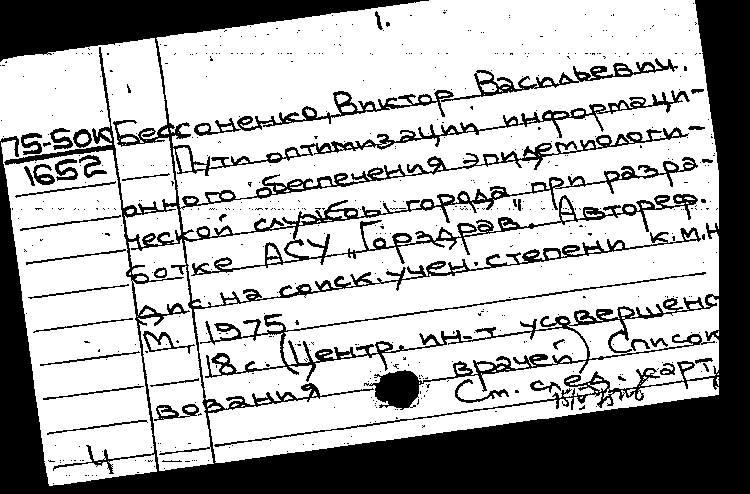 1.
75-50К Бессоненко, Виктор Васильевич.
1652 Пути оптимизации информаци-
онного обеспечения эпидемиологи-
ческой службы города при разра-
ботке АСУ „Горздрав". Автореф.
дис. на соиск. учен. степени к.м.н
М., 1975.
18 с. (Центр. ин-т усовершенс
вования врачей). Список
См. след. карт
4